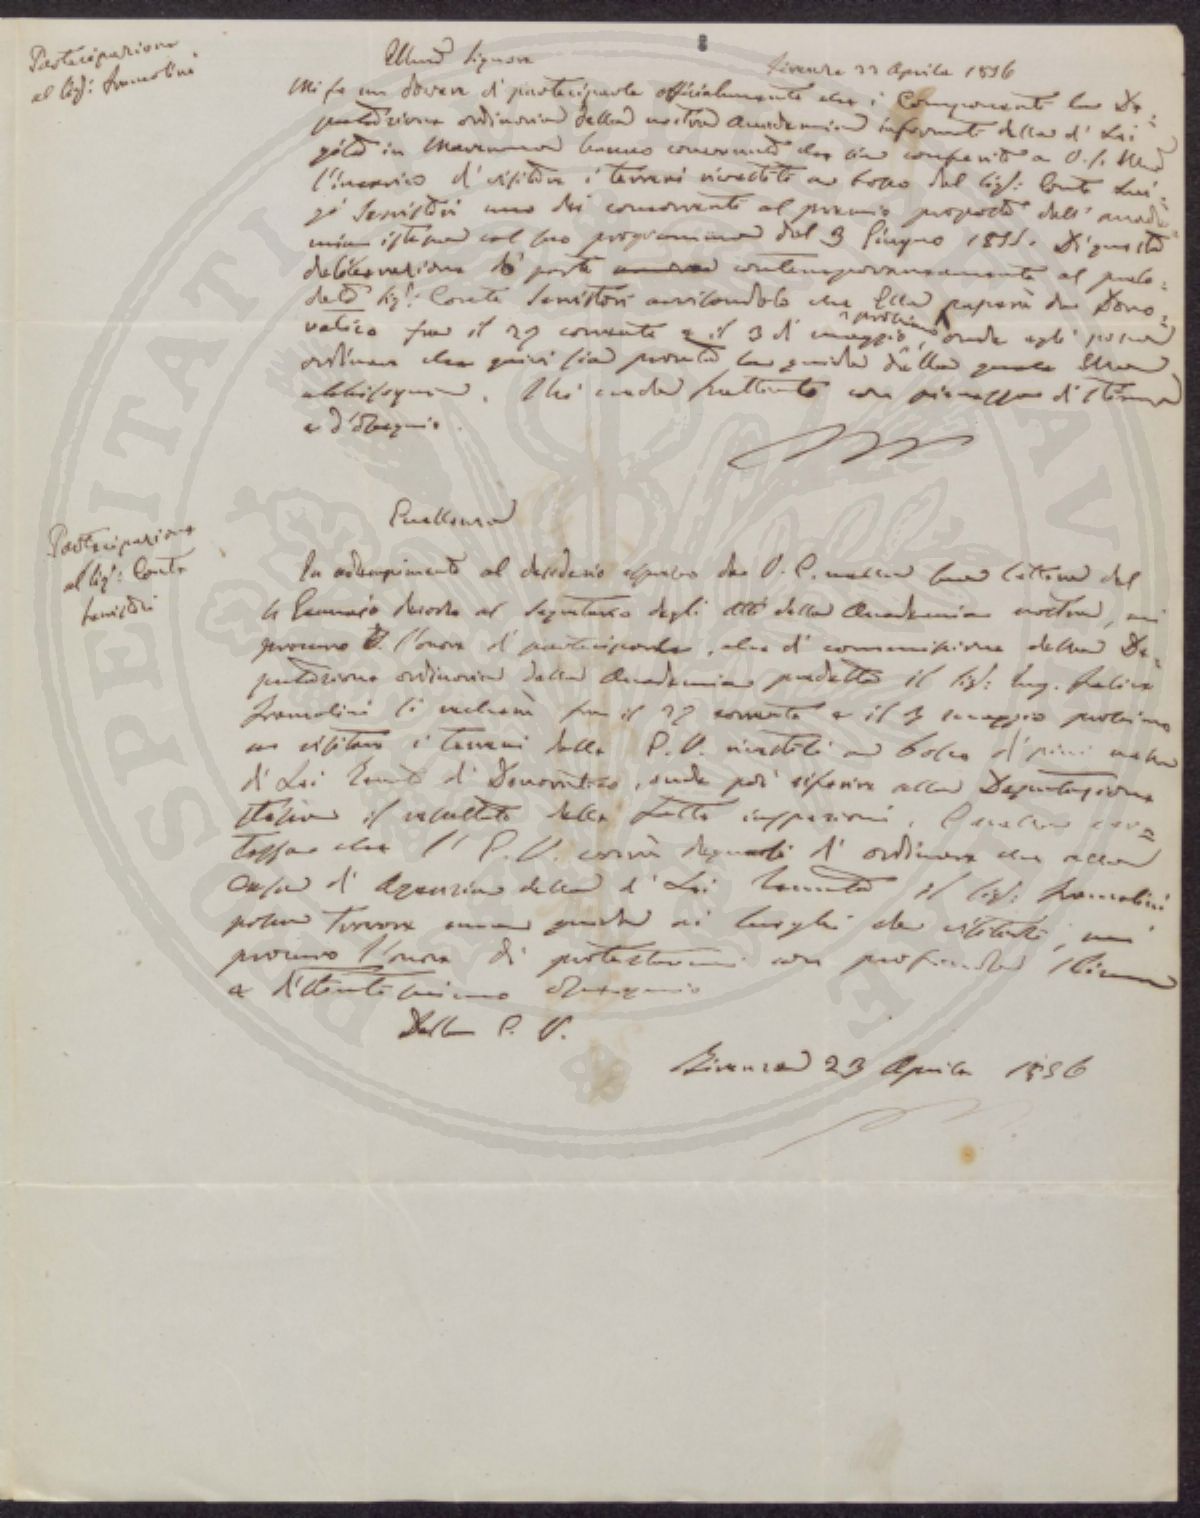 Partecipazione
al Sig: Francolini
Illmo Signore
Firenze 23 Aprile 1856
Mi fo un dovere di parteciparle officialmente che i Componenti la De=
putazione ordinaria della nostra Accademia informati della di Lei
gita in Maremma hanno che sia conferito a V.S. Illma
l'incarico di visitare i terreni rivestiti a bosco del Sig: Conte Lui=
gi Serristori uno dei concorrenti al premio proposto dall'Accade=
mia istessa col suo programma del 3 Giugno 1855. Di questa
deliberazione dò parte contemporaneamente al prelo=
dato Sig: Conte Serristori avvisandolo che Ella passerà da Dono=
ratico fra il 27 corrente e il 3 di maggio prossimo, onde egli possa
ordinare che quivi sia pronta la guida della quale Ella
abbisogna. Mi creda frattanto con stima
e d'ossequio.
Partecipazione
al Sig: Conte
Serristori
Eccellenza
In adempimento al desiderio espresso da V. E. nella sua lettera del
Gennaio decorso al Segretario degli Atti della Accademia nostra, mi
procuro l'onore di parteciparle, che di commissione della De=
putazione ordinaria della Accademia predetta il Sig: Ing. Felice
Francolini si recherà fra il 27 corrente e il 3 maggio prossimo
a visitare i terreni della E. V. rivestiti a bosco di pini nella
di Lei Tenuta di Donoratico, onde poi riferire alla Deputazione
stessa il resultato delle fatte ispezioni.
che l'E. V. vorrà degnarsi di ordinare che alla
Casa di Agenzia della di Lei Tenuta il Sig: Francolini
possa trovare una guida ai luoghi da visitarsi, mi
procuro l'onore di protestarmi con profonda stima
e distintissimo ossequio
Della E. V.
Firenze 23 Aprile 1856